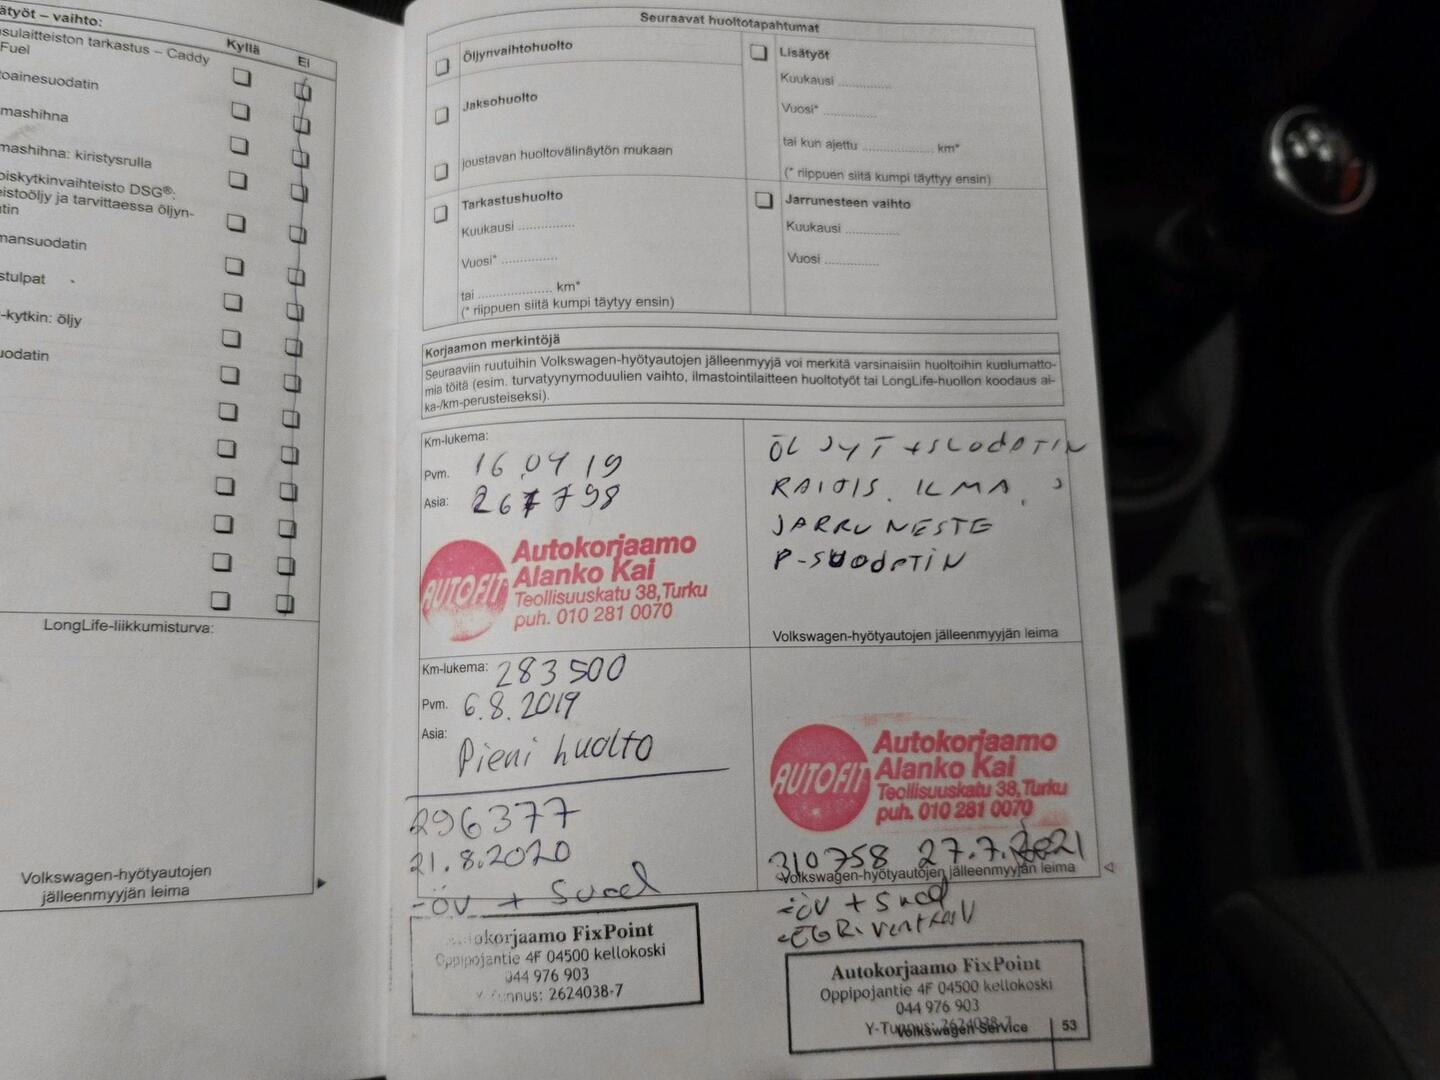 ätyöt – vaihto:
Kyllä
Ei
sulaitteiston tarkastus – Caddy
Fuel
oainesuodatin
mashihna
mashihna: kiristysrulla
oiskytkinvaihteisto DSG®:
eistoöljy ja tarvittaessa öljyn-
tin
mansuodatin
stulpat
-kytkin: öljy
uodatin
LongLife-liikkumisturva:
Volkswagen-hyötyautojen
jälleenmyyjän leima
Seuraavat huoltotapahtumat
Öljynvaihtohuolto
Jaksohuolto
joustavan huoltovälinäytön mukaan
Tarkastushuolto
Kuukausi ...............
Vuosi* ...............
tai .................... km*
(* riippuen siitä kumpi täytyy ensin)
Lisätyöt
Kuukausi ..............
Vuosi* ..............
tai kun ajettu ................... km*
(* riippuen siitä kumpi täyttyy ensin)
Jarrunesteen vaihto
Kuukausi ..............
Vuosi ..............
Korjaamon merkintöjä
Seuraaviin ruutuihin Volkswagen-hyötyautojen jälleenmyyjä voi merkitä varsinaisiin huoltoihin kuulumatto-
mia töitä (esim. turvatyynymoduulien vaihto, ilmastointilaitteen huoltotyöt tai LongLife-huollon koodaus ai-
ka-/km-perusteiseksi).
Km-lukema:
Pvm. 16.04 19
Asia: 267798
AUTOFIT
Autokorjaamo
Alanko Kai
Teollisuuskatu 38, Turku
puh. 010 281 0070
ÖLJYT + SUODATIN
RAITIS. ILMA.
JARRU NESTE
P-SUODATIN
Volkswagen-hyötyautojen jälleenmyyjän leima
Km-lukema: 283 500
Pvm. 6.8.2019
Asia: Pieni huolto
AUTOFIT
Autokorjaamo
Alanko Kai
Teollisuuskatu 38, Turku
puh. 010 281 0070
296377
21.8.2020
-ÖV + Suod
Autokorjaamo FixPoint
Oppipojantie 4F 04500 kellokoski
044 976 903
Y-Tunnus: 2624038-7
310758 27.7.2021
Volkswagen-hyötyautojen jälleenmyyjän leima
-ÖV + Suod
-EGR.
Autokorjaamo FixPoint
Oppipojantie 4F 04500 kellokoski
044 976 903
Y-Tunnus: 2624038-7
Volkswagen Service
53